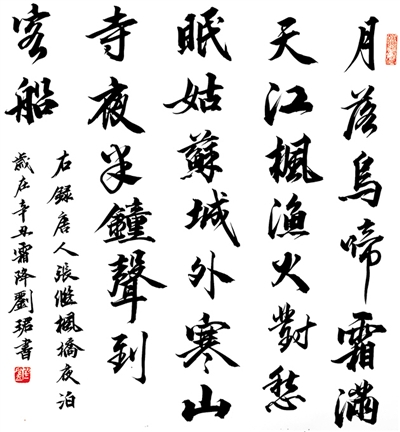 月落烏啼霜滿
天江楓漁火對愁
眠姑蘇城外寒山
寺夜半鐘聲到
客船
右錄唐人張繼楓橋夜泊
歲在辛丑霜降劉珺書